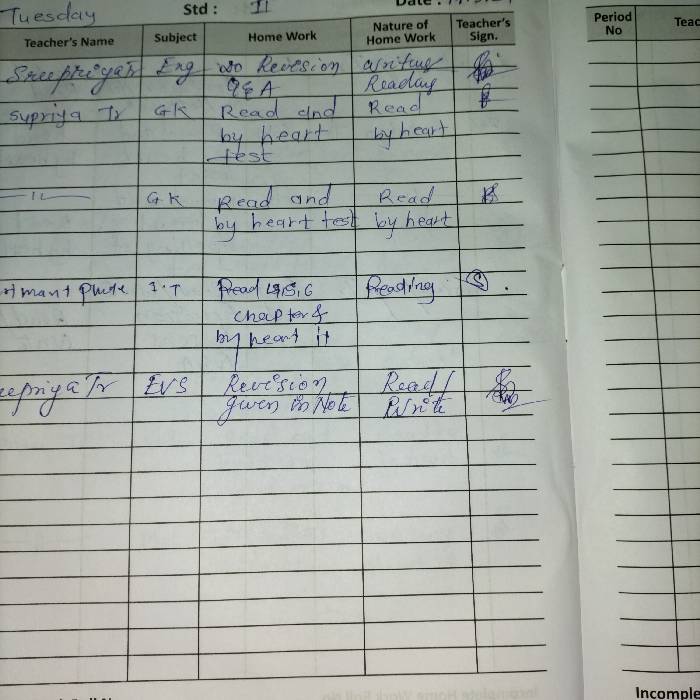 Tuesday Std : II Date :
Teacher's Name Subject Home Work Nature of Home Work Teacher's Sign.
Sreepriya Tr Eng Revision writing
Q&A Reading
Supriya Tr GK Read and Read
by heart by heart
test
GK Read and Read
by heart test by heart
I.T Read 4,5,6 Reading
chapter &
by heart it
eepriya Tr EVS Revision Read /
given in Note Write
Period No Teac
Incomple